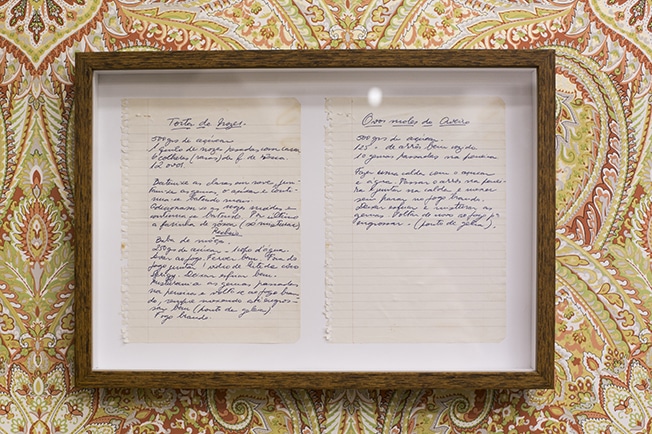 Torta de Nozes.
500 grs de açúcar
1 quilo de nozes passadas com casca
6 colheres (rasas) de f. de rosca
12 ovos.
Batem-se as claras em neve, jun-
tam-se as gemas, o açúcar e conti-
nua-se batendo mais.
Adicionam-se as nozes moídas e
continua-se batendo. Por último
a farinha de rosca (só misturar)
Recheio
Baba de moça
250 grs de açucar - 1 copo d'agua.
Levar ao fogo. Ferver bem. Fora do
fogo juntar 1 vidro de leite de côco
Deixar esfriar bem.
Misturam-se as gemas passadas
na peneira e volte ao fogo bran-
do, sempre mexendo até engros-
sar bem (ponto de geleia)
Fogo brando
Ovos moles de Aveiro
500 grs de açúcar
125 " de arrôs bem cozido
10 gemas passadas na peneira
Fazer uma calda com o açucar
e água. Passar o arrôs na penei-
ra e juntar na calda e mexer
sem parar no fogo brando.
Deixar esfriar e misturar as
gemas. Voltar de novo ao fogo pª
engrossar. (ponto de geleia).